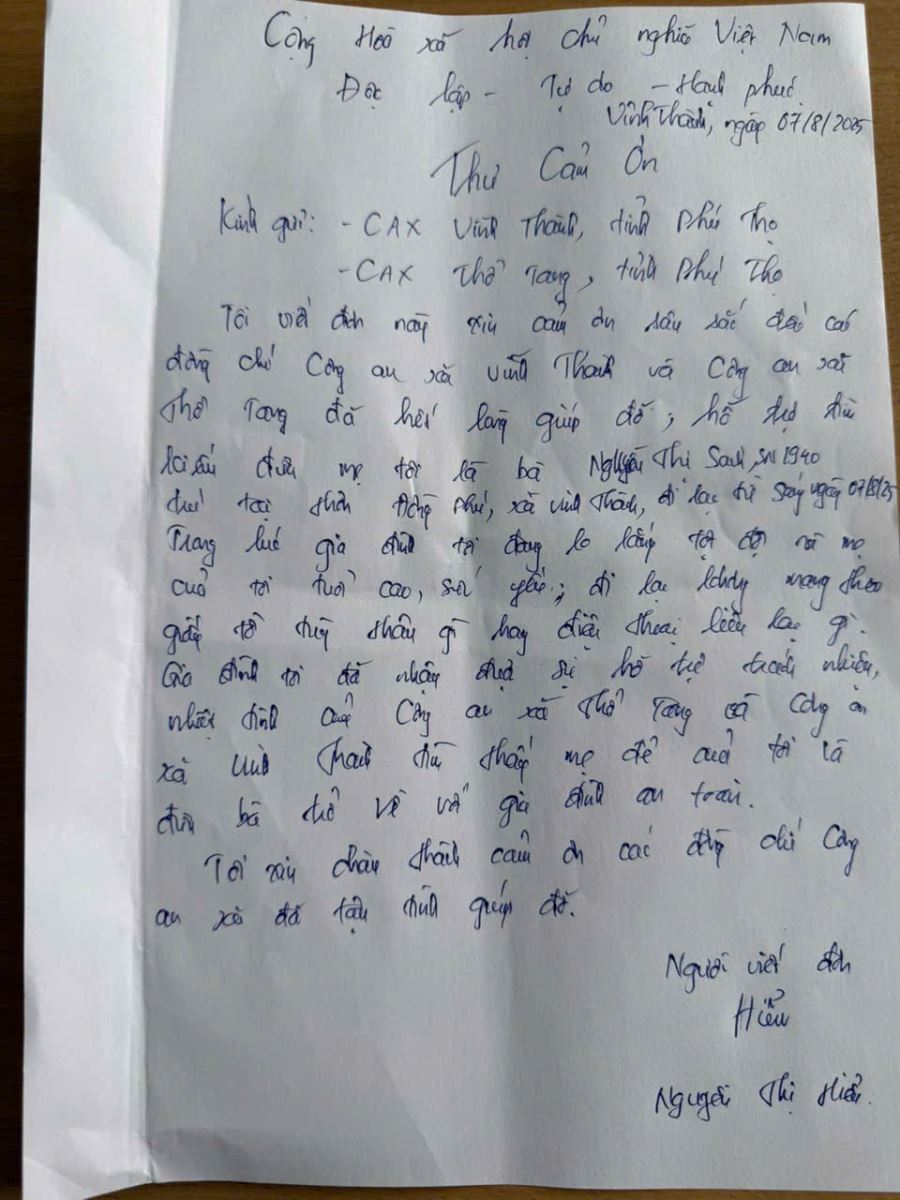 Cộng Hoà xã hội chủ nghĩa Việt Nam
Độc lập - Tự do - Hạnh phúc
Vĩnh Thành, ngày 07/8/2025
Thư Cảm Ơn
Kính gửi: - CAX Vĩnh Thành, tỉnh Phú Thọ
- CAX Thổ Tang, tỉnh Phú Thọ
Tôi viết đơn này xin cảm ơn sâu sắc đến các
đồng chí Công an xã Vĩnh Thành và Công an xã
Thổ Tang đã hết lòng giúp đỡ, hỗ trợ tìm
mẹ tôi là bà Nguyễn Thị Sanh, sn 1940
trú tại thôn Đồng Phú, xã Vĩnh Thành, đi lạc từ sáng ngày 07/8/25
Trong lúc gia đình tôi đang lo lắng tột độ vì mẹ
của tôi tuổi cao, sức yếu, đi lạc không mang theo
giấy tờ tùy thân gì hay điện thoại liên lạc gì.
Gia đình tôi đã nhận được sự hỗ trợ trách nhiệm,
nhiệt tình của Công an xã Thổ Tang và Công an
xã Vĩnh Thành tìm thấy mẹ đẻ của tôi và
đưa bà trở về với gia đình an toàn.
Tôi xin chân thành cảm ơn các đồng chí Công
an xã đã tận tình giúp đỡ.
Người viết đơn
Hiểu
Nguyễn Thị Hiểu.